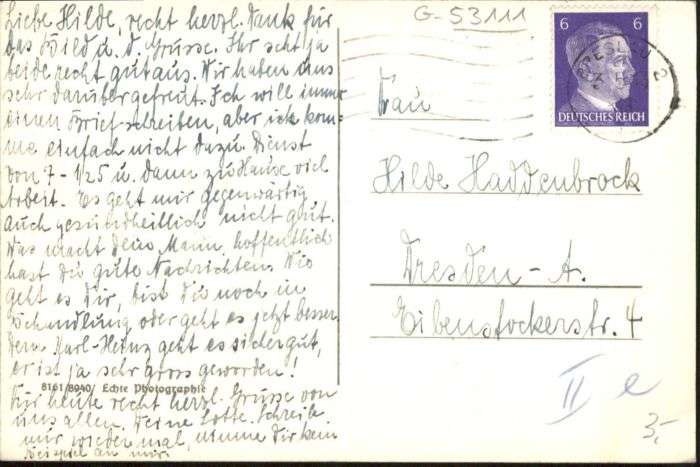 Liebe Hilde, recht herzl. Dank für
das Bild u. d. Grüsse. Ihr seht ja
beide recht gut aus. Wir haben uns
sehr darüber gefreut. Ich will immer
einen Brief schreiben, aber ich kom-
me einfach nicht dazu. Dienst
von 7 - 1/25 u. dann zu Hause viel
Arbeit. Es geht mir gegenwärtig
auch gesundheitlich nicht gut.
Was macht Dein Mann, hoffentlich
hast Du gute Nachrichten. Wie
geht es Dir, bist Du noch in
Behandlung oder geht es jetzt besser.
Dem Karl-Heinz geht es sicher gut,
er ist ja sehr gross geworden!
8161/8940/ Echte Photographie
Für heute recht herzl. Grüsse von
uns allen. Deine Lotte. Schreib
mir wieder mal, nimm Dir kein
Beispiel an mir.
G-53111
6 6
DEUTSCHES REICH
BRESLAU 2
Frau
Hilde Haddenbrock
Dresden - A.
Eibenstockerstr. 4
II e
3,-